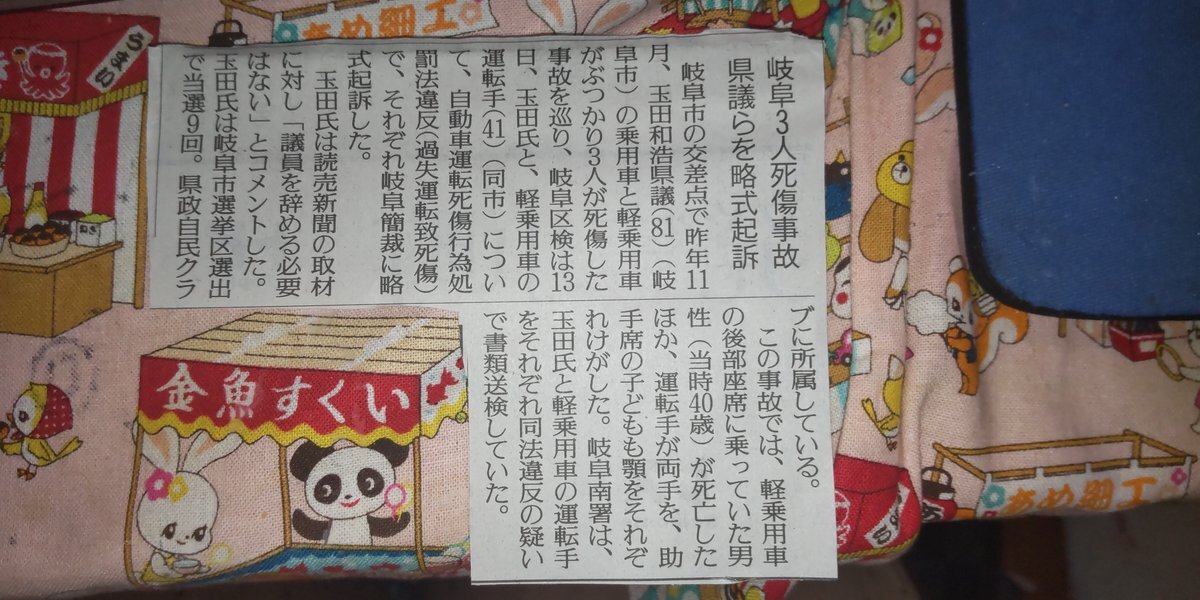 岐阜3人死傷事故
県議らを略式起訴
岐阜市の交差点で昨年11
月、玉田和浩県議(81)(岐
阜市)の乗用車と軽乗用車
がぶつかり3人が死傷した
事故を巡り、岐阜区検は13
日、玉田氏と、軽乗用車の
運転手(41)(同市)につい
て、自動車運転死傷行為処
罰法違反(過失運転致死傷)
で、それぞれ岐阜簡裁に略
式起訴した。
玉田氏は読売新聞の取材
に対し「議員を辞める必要
はない」とコメントした。
玉田氏は岐阜市選挙区選出
で当選9回。県政自民クラ
ブに所属している。
この事故では、軽乗用車
の後部座席に乗っていた男
性(当時40歳)が死亡した
ほか、運転手が両手を、助
手席の子どもも顎をそれぞ
れけがした。岐阜南署は、
玉田氏と軽乗用車の運転手
をそれぞれ同法違反の疑い
で書類送検していた。
あめ細工
金魚すくい
あめ細工